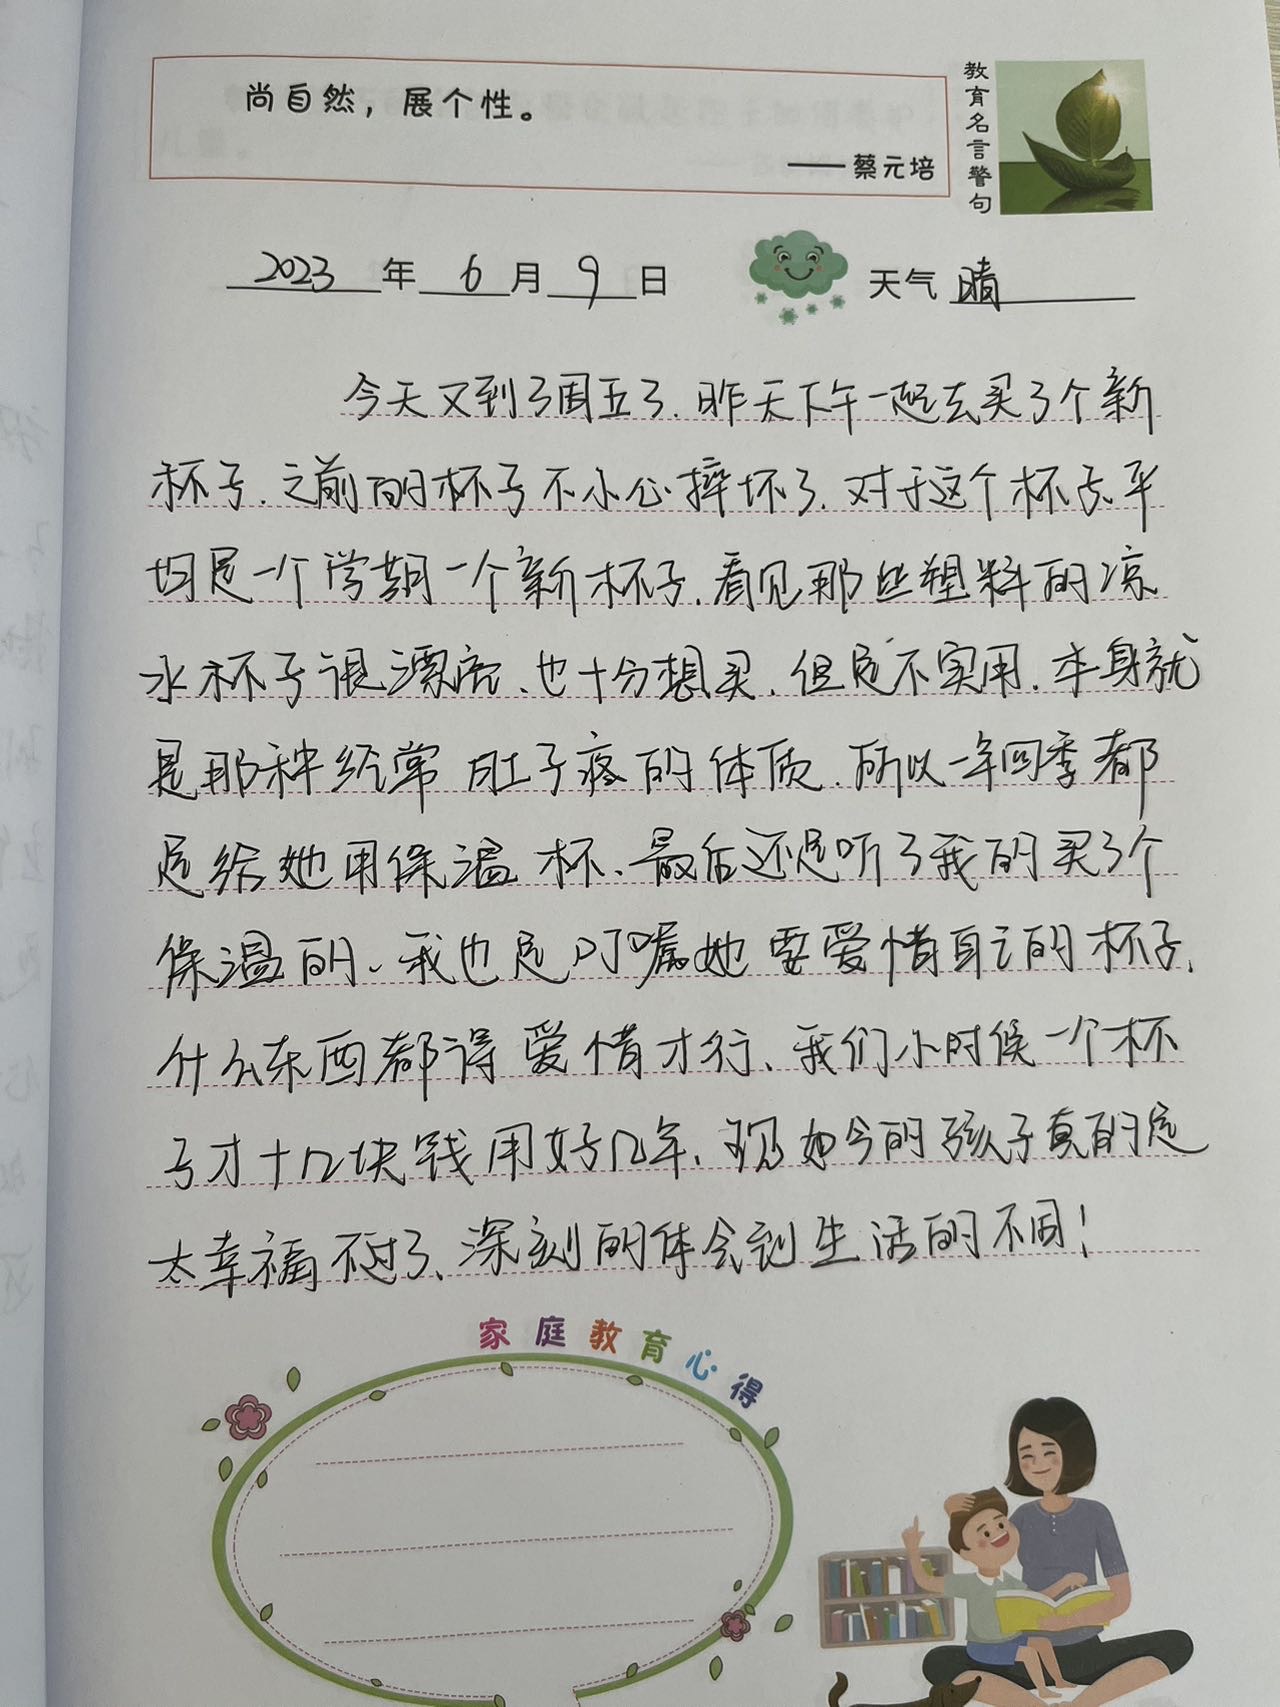 尚自然，展个性。
——蔡元培
教育名言警句
2023年6月9日
天气 晴
今天又到了周五了.昨天下午一起去买了个新
杯子.之前的杯子不小心摔坏了.对于这个杯子平
均是一个学期一个新杯子.看见那些塑料的凉
水杯子很漂亮、也十分想买.但是不实用.本身就
是那种经常肚子疼的体质.所以一年四季都
是给她用保温杯、最后还是听了我的买了个
保温的、我也是叮嘱她要爱惜自己的杯子.
什么东西都得爱惜才行、我们小时候一个杯
子才十几块钱用好几年.现如今的孩子真的是
太幸福不过了、深刻的体会到生活的不同!
家庭教育心得